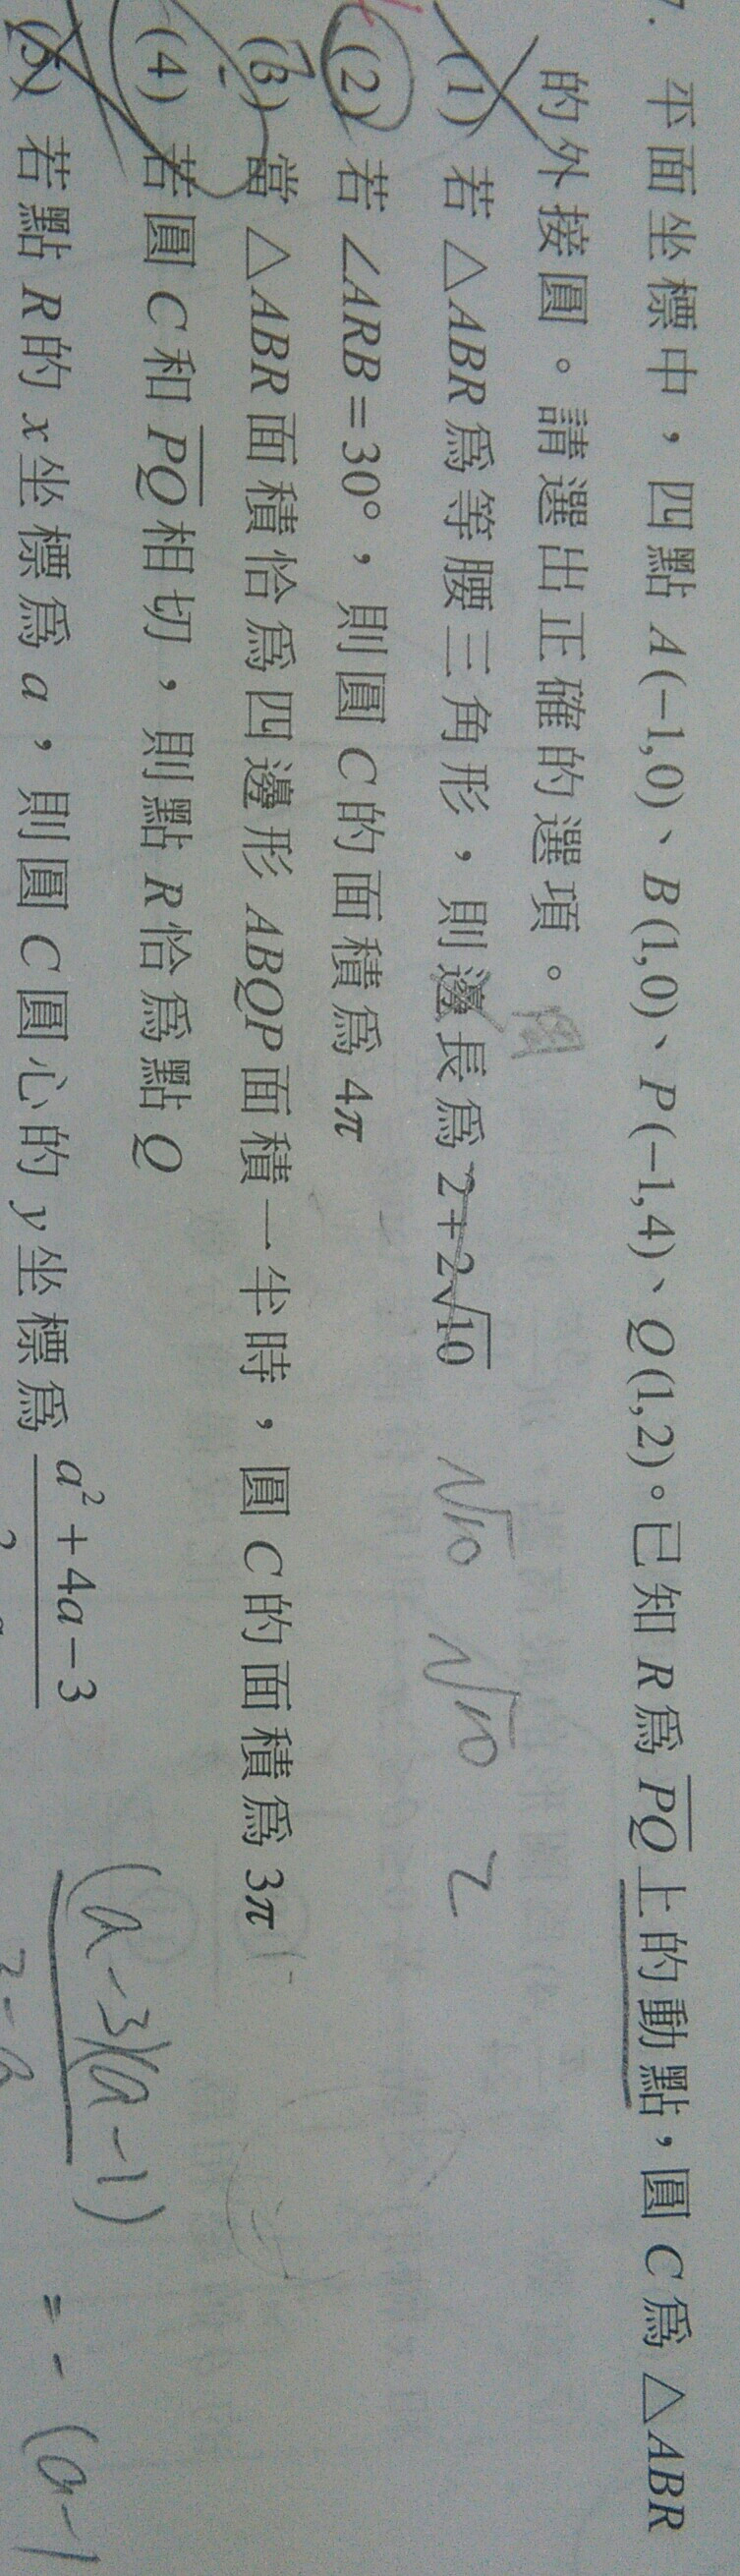 7. 平面坐標中，四點 A(−1,0)、B(1,0)、P(−1,4)、Q(1,2)。已知 R 為 PQ 上的動點，圓 C 為 △ABR
的外接圓。請選出正確的選項。
(1) 若 △ABR 為等腰三角形，則邊長為 2+2√10 √10 √10 2
(2) 若 ∠ARB=30°，則圓 C 的面積為 4π
(3) 當 △ABR 面積恰為四邊形 ABQP 面積一半時，圓 C 的面積為 3π
(4) 若圓 C 和 PQ 相切，則點 R 恰為點 Q
(5) 若點 R 的 x 坐標為 a，則圓 C 圓心的 y 坐標為 a²+4a−3
(a-3)(a-1) = -(a-1